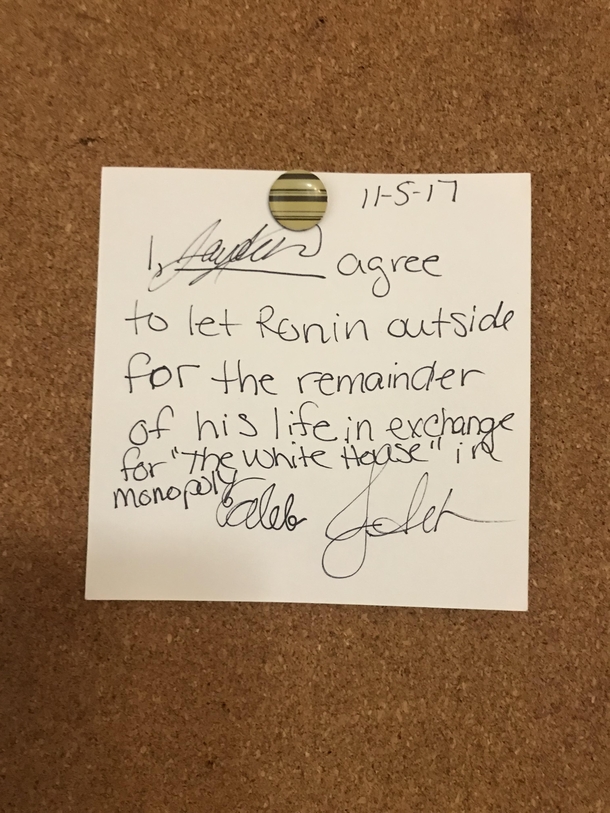 11-5-17
I, Jayden agree
to let Ronin outside
for the remainder
of his life in exchange
for "the White House" in
monopoly
Caleb